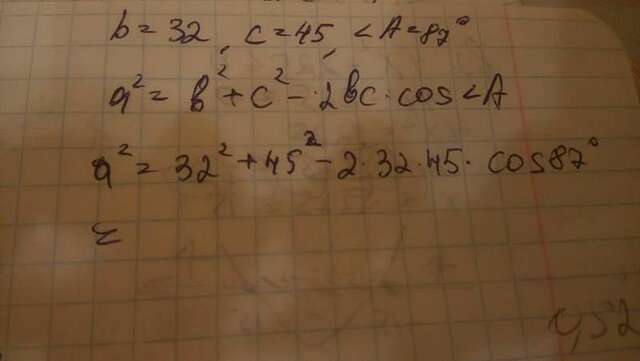 b = 32, c = 45, <A = 87°
a² = b² + c² - 2bc · cos <A
a² = 32² + 45² - 2 · 32 · 45 · cos 87°